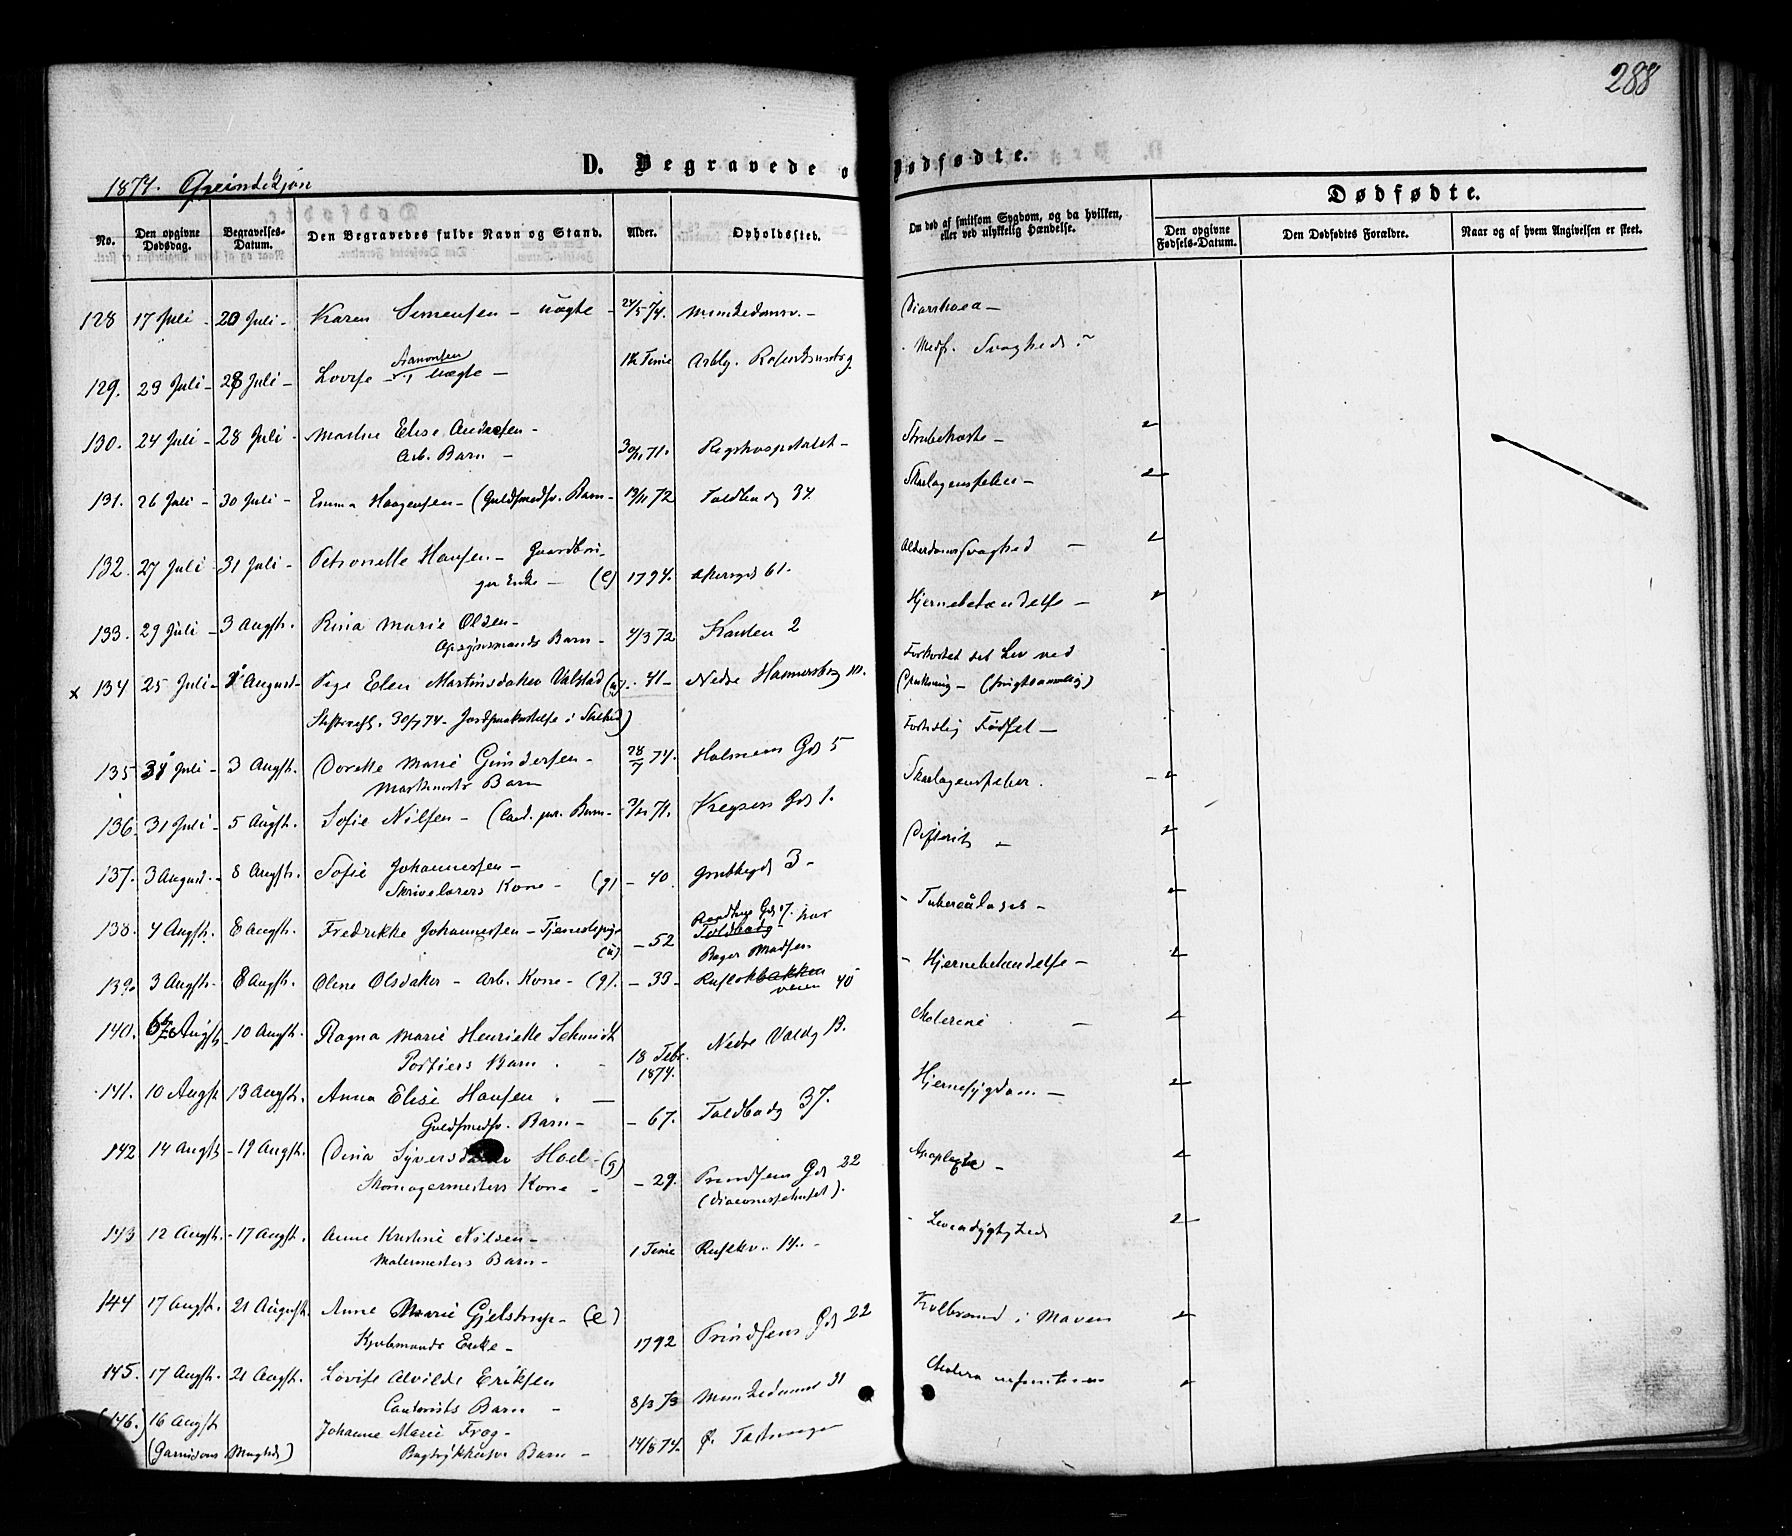 288
D. Begravede o Dødfødte.
1874. Qvindekjøn
Dødfødte.
No. Den opgivne Dødsdag. Begravelses-Datum. Den Begravedes fulde Navn og Stand. Alder. Opholdssted. Om død af smitsom Sygdom, og da hvilken, eller ved ulykkelig Hændelse. Den opgivne Fødsels-Datum. Den Dødfødtes Forældre. Naar og af hvem Angivelsen er skeet.
128 17 Juli - 20 Juli - Karen Simensen - uægte - 24/5 74. Munkedamsv. - Diarrhoea -
129. 23 Juli - 28 Juli - Lovise Aamonsen uægte - Time Arbbg. Medf. Svaghed
130. 24 Juli - 28 Juli - Marthe Elise Andersen - Strubehoste - 2
Arb. Barn - 30/11 71. Rigshospitalet -
131. 26 Juli - 30 Juli - Emma Haagensen - (Guldsmedsv. Barn - 13/11 72 Toldbodg 34. Skarlagensfeber - 2
132. 27 Juli - 31 Juli - Petronelle Hansen - Gaardbru- Alderdomssvaghed - 2
ger Enke - (e) 1794. Akersgd 61.
133. 29 Juli - 3 Augst. Rina Marie Olsen - Hjernebetændelse - 2
Opsynsmands Barn - 4/3 72 Kanten 2
x 134 25 Juli - August - Pige Elen Martinsdatter Valstad (u) - 41 - Nedre Hammersbg Forkortet sit Liv ved
Drukning - (Sindssvag)
Skifteret. 30/7 74. Jordpaakastelse i Stilhed)
135 31 Juli - 3 Augst. Dorthe Marie Gundersen - 28/7 74. Holmens Gd 5 Fortidlig Fødsel -
Barn
136. 31 Juli - 5 Augst. Sofie Nilsen - (Cand. jur. Barn - 71. Kreysers Gd 1. Skarlagensfeber. - 2
137. 3 August - 8 Augst. Sofie Johannessen - Difterit - 2
Skrivelærers Kone - (g) - 40. Grubbegd 3 -
138. 4 Augst. 8 Augst. Fredrikke Johannessen - Tjenestepige (u) - 52 Raadhus Gd 7. hos Toldbodg Bager Madsen - Tuberculoses - 2
139. 3 Augst. - 8 Augst. Oline Olsdatter - Arb. Kone - (g). - 33 - Ruseløkbakken veien 40 - Hjernebetændelse - 2
140. 6 Augst - 10 Augst. Ragna Marie Henriette Schmidt Cholerine - 2
Portiers Barn - 18 Febr. 1874. Nedre Voldg 13.
141. 10 Augst 13 Augst. Anna Elise Hansen - Hjernesygdom - 2
Guldsmedsv. Barn - - 67. Toldbodg 37.
142 14 Augst - 19 Augst. Dina Syversdatter Hoel - (g) Apoplexie - 2
Skomagermesters Kone - - 29. Prindsens Gd 22
(Diaconissehuset).
143 12 Augst. - 17 Augst. Anne Kristine Nilsen - - Levendygtighed 2
Malermesters Barn - 1 Time Ruseløkv. 14. -
144 17 Augst. 21 August. Anne Marie Gjelstrup - (e) Koldbrand i Maven 2
Kjøbmands Enke - 1792 Prindsens Gd 22
145. 17 Augst. 21 Augst. Lovise Alvilde Eriksen Cholera infantum 2
Contorists Barn - 8/3 73 Munkedamsv 31
(146.) 16 Augst Johanne Marie Frog - 14/8 74.
(Garnisons Menighed) Bogtrykkersv Barn -